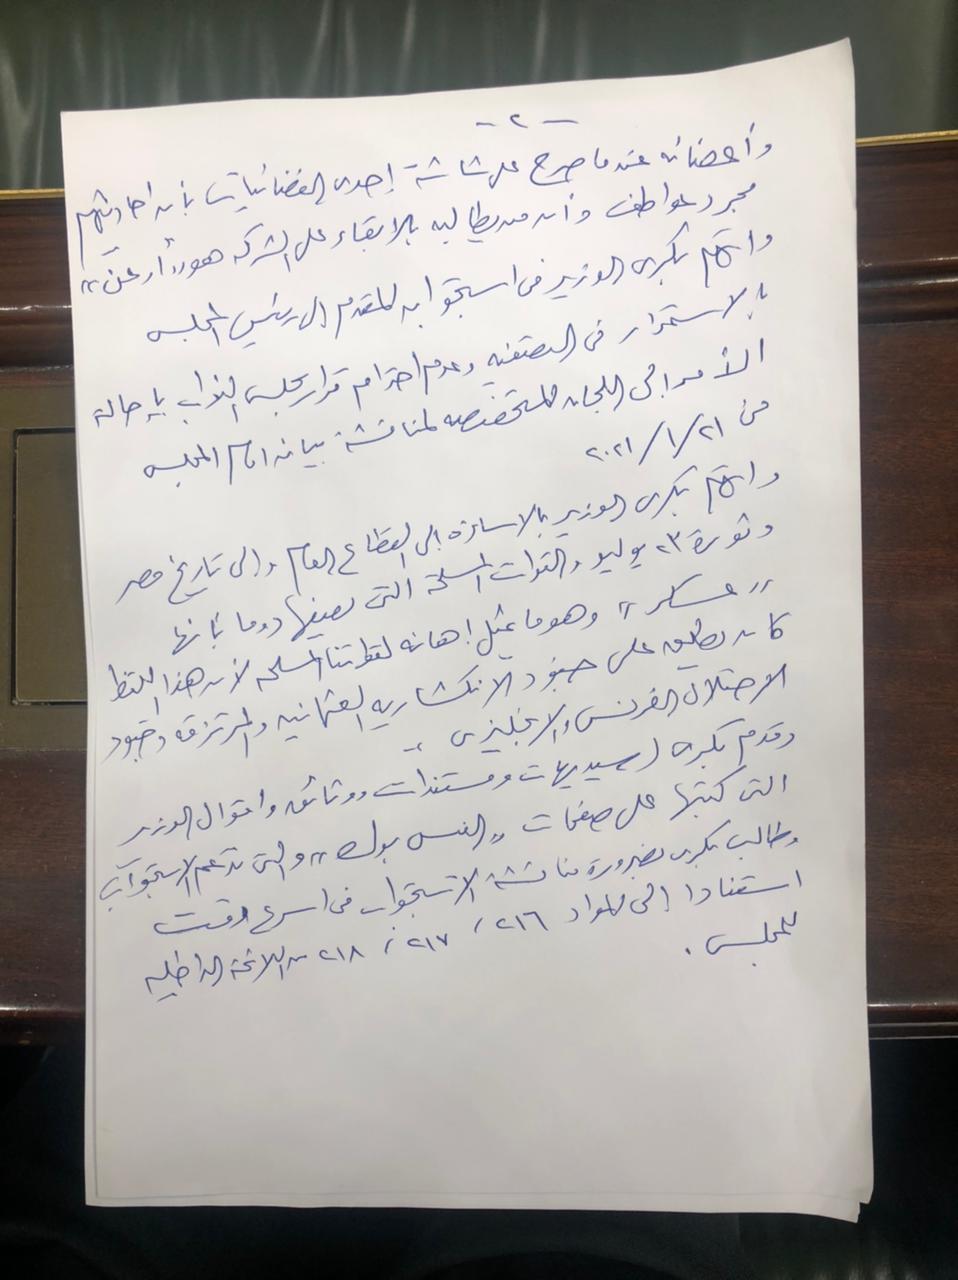 - ٢ -
وأعضائه عندما صرح على شاشة إحدى الفضائيات بأن أحاديثهم
مجرد عواطف وأن من يطالبه بالإبقاء على الشركة هو "أرعن"
واتهم بكرى الوزير فى استجوابه المقدم إلى رئيس المجلس
بالاستمرار فى التصفيه وعدم احترام قرار مجلس النواب بإحالة
الأمر إلى اللجان المتخصصه لمناقشة بيانه امام المجلس
من ٢٠٢١/١/٢١
واتهم بكرى الوزير بالاساءة إلى القطاع العام وإلى تاريخ مصر
وثورة ٢٣ يوليو والقوات المسلحة التى يصفها دوما بأنها
"عسكر" وهو ما يمثل إهانه لقواتنا المسلحه لأن هذا اللفظ
كان يطلق على جنود الانكشاريه العثمانيه والمرتزقه وجنود
الاحتلال الفرنسى والإنجليزى
وقدم بكرى سيديهات ومستندات ووثائق واقوال الوزير
التى كتبها على صفحات "الفيس بوك" والتى تدعم الاستجواب
وطالب بكرى بضرورة مناقشة الاستجواب فى اسرع وقت
استنادا إلى المواد ٢١٦، ٢١٧، ٢١٨ من اللائحة الداخليه
للمجلس.